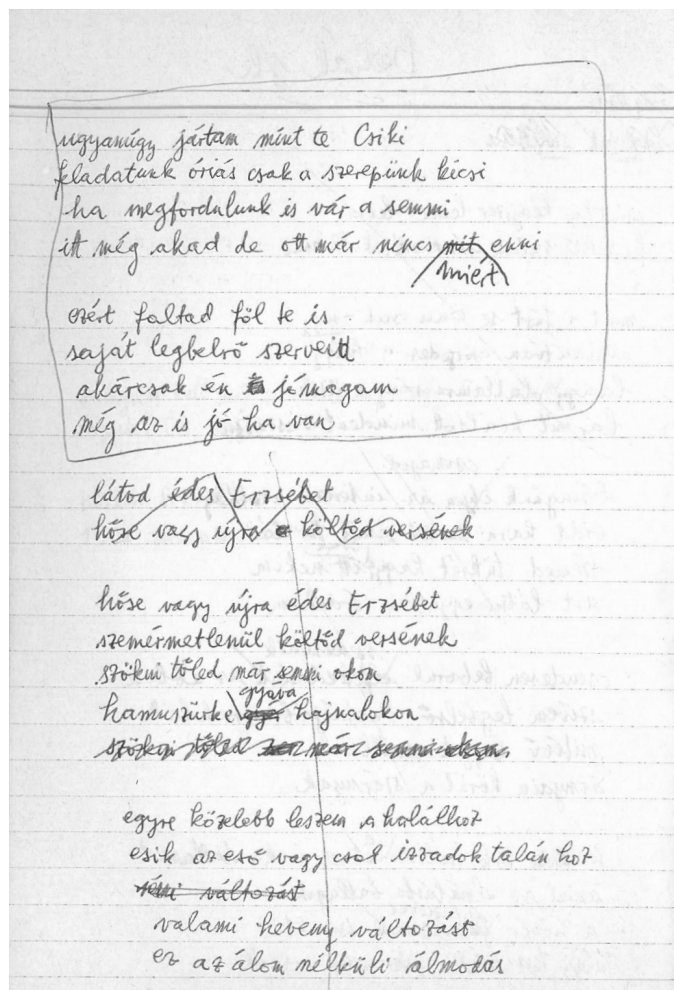 ugyanúgy jártam mint te Csiki
feladatunk óriás csak a szerepünk kicsi
ha megfordulunk is vár a semmi
itt még akad de ott már nincs mit enni
miért
ezért faltad föl te is
saját legbelső szerveid
akárcsak én jómagam
még az is jó ha van
látod édes Erzsébet
hőse vagy újra költőd versének
hőse vagy újra édes Erzsébet
szemérmetlenül költőd versének
szökni tőled már semmi okon
gyáva
hamuszürke hajnalokon
szökni tőled már semmi okon
egyre közelebb leszem a halálhoz
esik az eső vagy csal izzadok talán hoz
némi változást
valami heveny változást
ez az álom nélküli álmodás